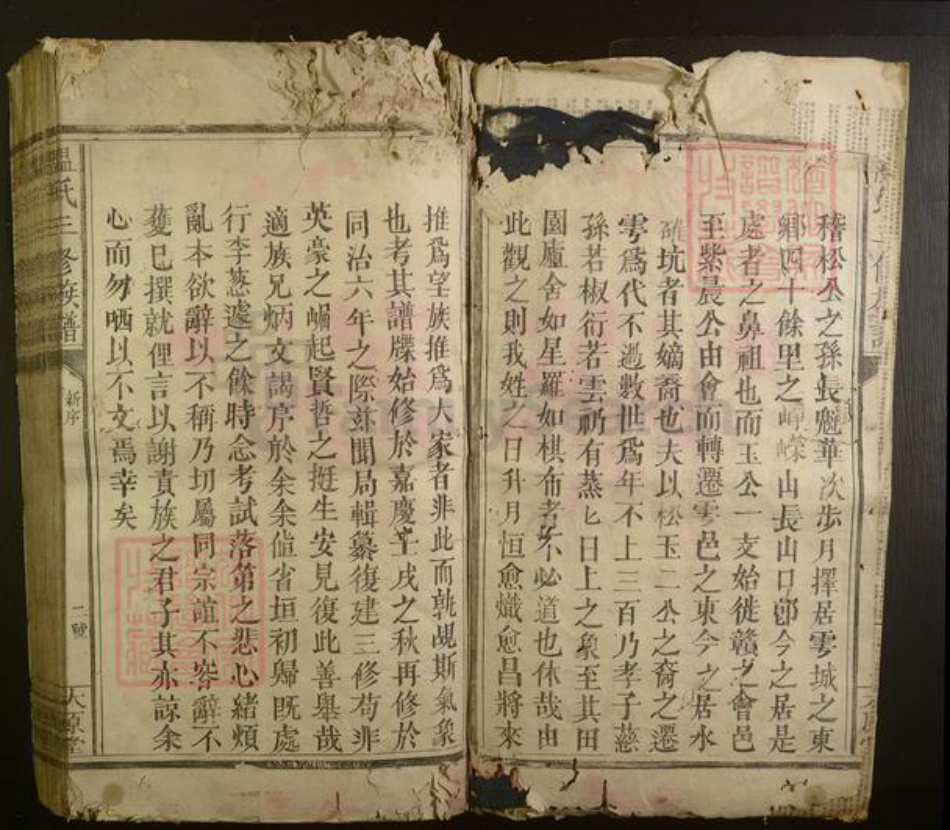 稽松公之孫長魁華次步月擇居雩城之東
鄉四十餘里之崢嶸山長山口郎今之居是
處者之鼻祖也而玉公一支始徙贛之會邑
至紫晨公由會而轉遷雩邑之東今之居水
確坑者其嫡裔也夫以松玉二公之裔之遷
雩爲代不過數世爲年不上三百乃孝子慈
孫若椒衍若雲礽有蒸匕日上之象至其田
園廬舍如星羅如棋布者不必道也休哉由
此觀之則我姓之日升月恒愈熾愈昌將來
推爲望族推爲大家者非此而孰覘斯氣象
也考其譜牒始修於嘉慶壬戌之秋再修於
同治六年之際茲聞局輯纂復建三修苟非
英豪之崛起賢哲之挺生安見復此善舉哉
適族兄炳文謁序於余余值省垣初歸既處
行李怱遽之餘時念考試落第之悲心緒煩
亂本欲辭以不稱乃切屬同宗誼不容辭不
獲已撰就俚言以謝貴族之君子其亦諒余
心而勿哂以不文焉幸矣
溫氏三修族譜
新序
二號
太原堂